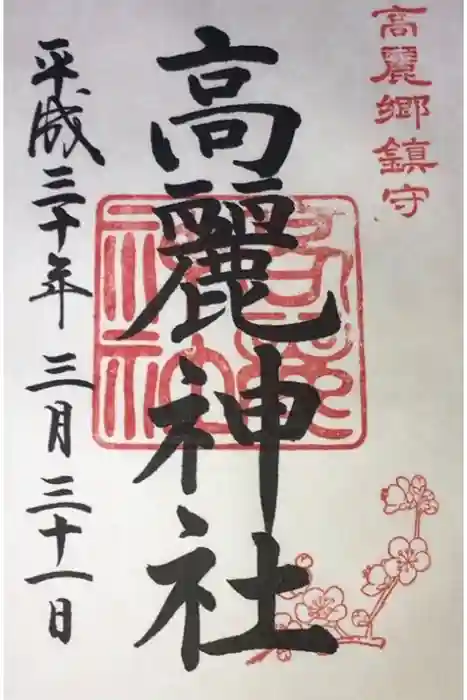 高麗郷鎮守
高麗神社
平成三十年三月三十一日